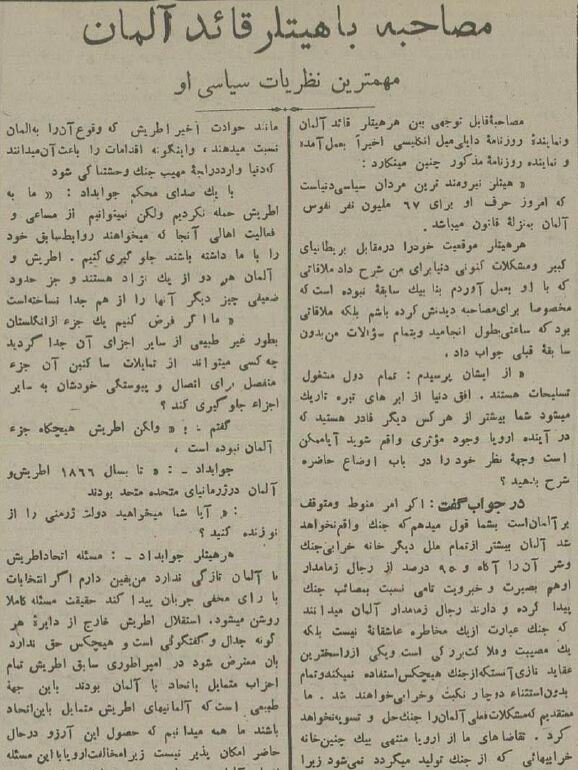 مصاحبه با هیتلر قائد آلمان
مهمترین نظریات سیاسی او
مصاحبهٔ قابل توجهی بین هر هیتلر قائد آلمان
و نمایندهٔ روزنامهٔ دایلی میل انگلیسی اخیراً بعمل آمده
و نماینده روزنامهٔ مذکور چنین مینگارد :
« هیتلر نیرومند ترین مردان سیاسی دنیاست
که امروز حرف او برای ۶۷ ملیون نفر نفوس
آلمان بمنزلهٔ قانون میباشد .
هر هیتلر موقعیت خود را در مقابل بریطانیای
کبیر ومشکلات کنونی دنیا برای من شرح داد ملاقاتی
که با او بعمل آوردم بنا بیك سابقهٔ نبوده است که
مخصوصا برای مصاحبه دیدنش کرده باشم بلکه ملاقاتی
بود که ساعتی بطول انجامید وبتمام سؤالات من بدون
سابقهٔ قبلی جواب داد .
« از ایشان پرسیدم : تمام دول مشغول
تسلیحات هستند . افق دنیا از ابر های تیره تاریك
میشود شما بیشتر از هر کس دیگر قادر هستید که
در آینده اروپا وجود مؤثری واقع شوید آیا ممکن
است وجههٔ نظر خود را در باب اوضاع حاضره
شرح بدهید ؟
در جواب گفت : اگر امر منوط ومتوقف
بر آلمان است بشما قول میدهم که جنك واقع نخواهد
شد آلمان بیشتر از تمام ملل دیگر خانه خرابی جنك
وشر آن را آگاه و ۹۵ درصد از رجال زمامدار
او هم بصیرت و خبرویت تامی نسبت بمصائب جنك
پیدا کرده و دارند رجال زمامدار آلمان میدانند
که جنك عبارت از یك مخاطره عاشقانهٔ نیست بلکه
یك مصیبت وفلاکت بزرگی است ویکی از راسخترین
عقاید نازی آنستکه از جنك هیچکس استفاده نمیکند وتمام
بدون استثناء دوچار نکبت وخرابی خواهند شد . ما
معتقدیم که مشکلات فعلی آلمان را جنك حل و تسویه نخواهد
کرد . تقاضاهای ما از اروپا منتهی بیك چنین خانه
خرابیهائی که از جنك تولید میگردد نمی شود زیرا
مانند حوادث اخیر اطریش که وقوع آن را به آلمان
نسبت میدهند ، و اینگونه اقدامات را باعث آن میدانند
که دنیا وارد در اجهٔ مهیب جنك وحشتناکی شود
با یك صدای محکم جوابداد : « ما به
اطریش حمله نکردیم ولکن نمیتوانیم از مساعی و
فعالیت اهالی آنجا که میخواهند روابط سابق خود
را با ما داشته باشند جلو گیری کنیم . اطریش و
آلمان هر دو از یك نژاد هستند و جز حدود
ضعیفی چیز دیگر آنها را از هم جدا نساخته است
« ما اگر فرض کنیم یك جزء از انگلستان
بطور غیر طبیعی از سایر اجزای آن جدا گردید
چه کسی میتواند از تمایلات ساکنین آن جزء
منفصل برای اتصال و پیوستگی خودشان به سایر
اجزاء جلو گیری کند ؟
گفتم - : « ولکن اطریش هیچگاه جزء
آلمان نبوده است .
جوابداد - : « تا بسال ۱۸۶۶ اطریش و
آلمان در ژرمانیای متحده متحد بودند
: « آیا شما میخواهید دولت ژرمنی را از
نو زنده کنید ؟
هر هیتلر جوابداد - : مسئله اتحاد اطریش
با آلمان تازگی ندارد من یقین دارم اگر انتخابات
با رای مخفی جریان پیدا کند حقیقت مسئله کاملا
روشن میشود . استقلال اطریش خارج از دایرهٔ هر
گونه جدال و گفتگوئی است و هیچکس حق ندارد
بآن معترض شود در امپراطوری سابق اطریش تمام
احزاب متمایل باتحاد با آلمان بودند باین جههٔ
طبیعی است که آلمانیهای اطریش متمایل باین اتحاد
باشند ما همه میدانیم که حصول این آرزو در حال
حاضر امکان پذیر نیست زیرا مخالفت اروپا با این مسئله